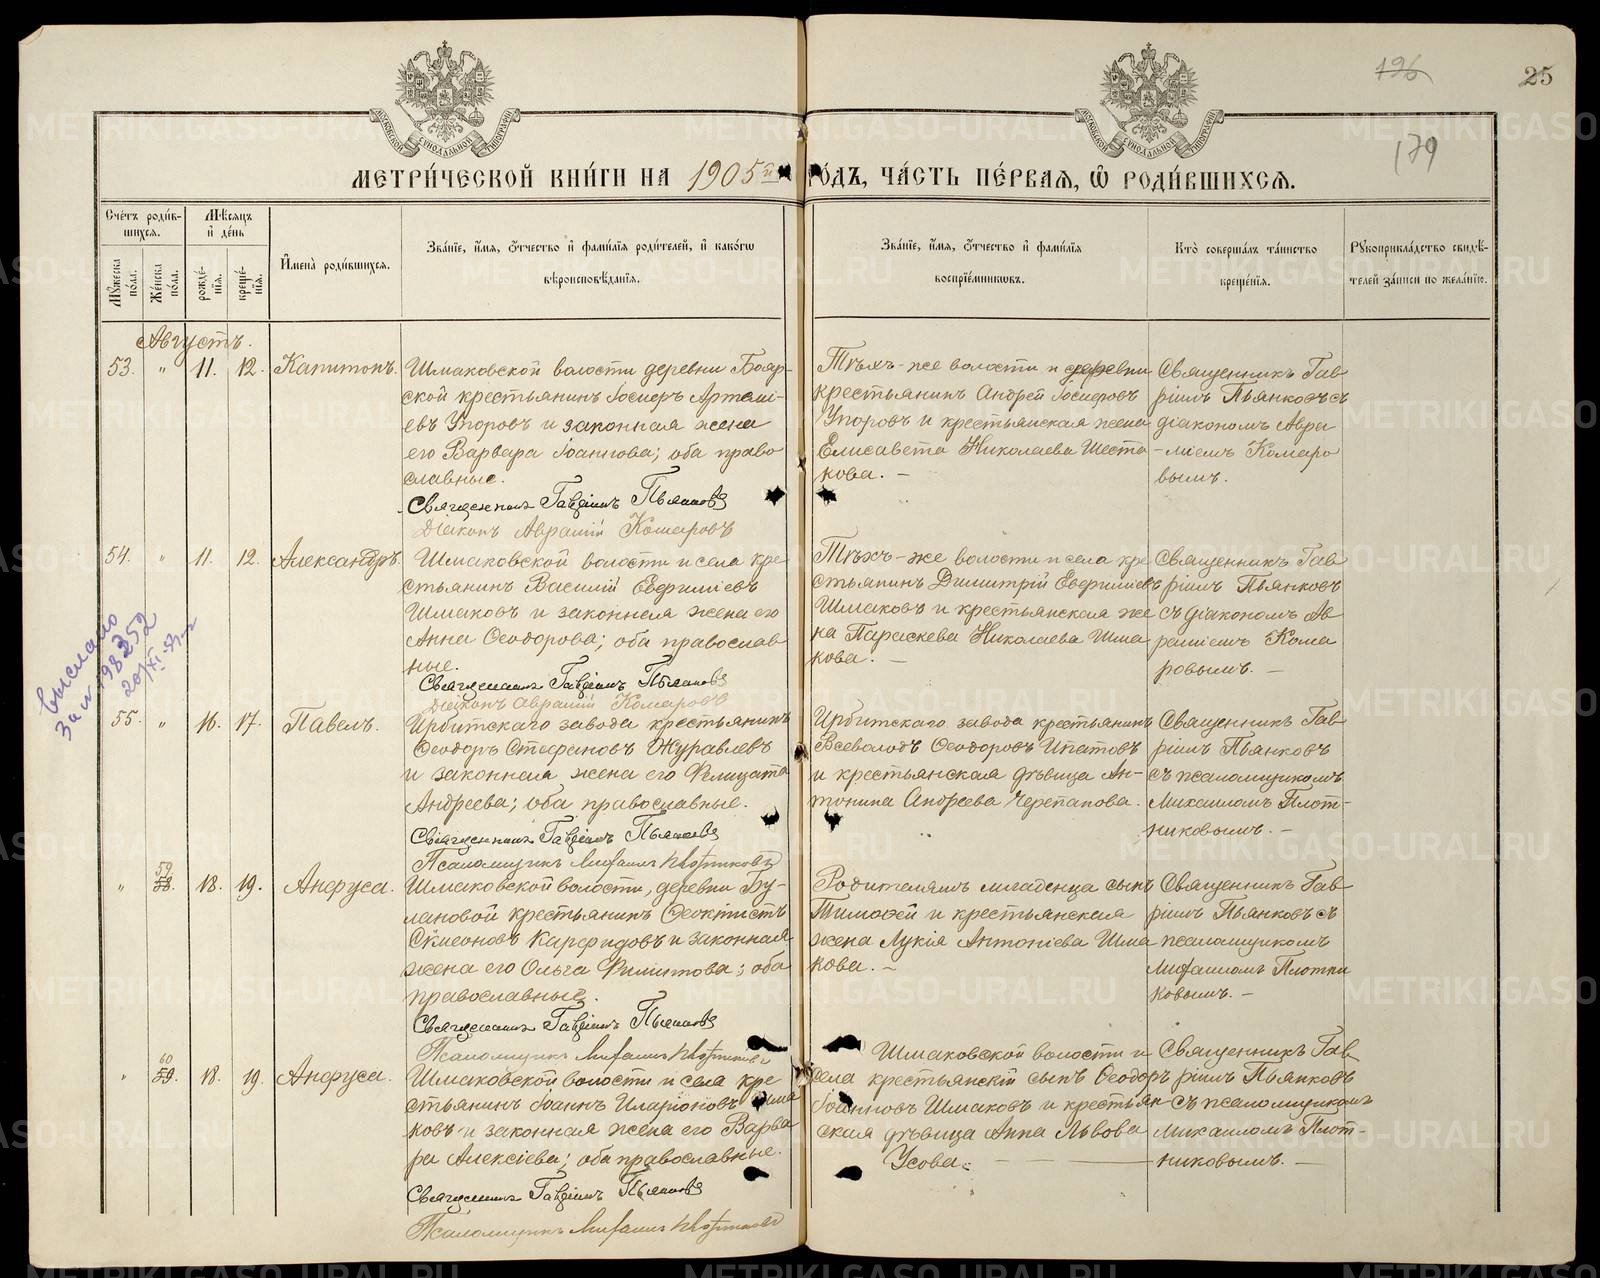 196
25
179
МЕТРИ́ЧЕСКОЙ КНИ́ГИ НА 1905й ГО́ДЪ, ЧА́СТЬ ПЕ́РВАѦ, Ѡ҆ РОДИ́ВШИХСѦ.
Сче́тъ роди́в-
шихсѧ.
Мꙋ́жеска по́ла.
Же́нска по́ла.
Мѣ́сѧцъ
и҆ де́нь
рожде́-
нїѧ.
креще́-
нїѧ.
И҆мена̀ роди́вшихсѧ.
Зва́нїе, и҆́мѧ, ѻ҆́тчество и҆ фами́лїѧ роди́телей, и҆ како́гѡ
вѣроисповѣ́данїѧ.
Зва́нїе, и҆́мѧ, ѻ҆́тчество и҆ фами́лїѧ
воспрїе́мниковъ.
Кто̀ соверша́лъ та́инство
креще́нїѧ.
Рꙋкоприкла́дство свидѣ́-
телей за́писи по жела́нїю.
Августъ.
53. " 11. 12. Капитонъ.
Шмаковской волости деревни Бояр-
ской крестьянинъ Іосифъ Артеми-
евъ Упоровъ и законная жена
его Варвара Іоаннова; оба право
славные.
Священникъ Гавріилъ Пьянковъ
Діаконъ Аврамій Комаровъ
Тѣхъ-же волости и деревни
крестьянинъ Андрей Іосифовъ
Упоровъ и крестьянская жена
Елисавета Николаева Шеста
кова. –
Священникъ Гав
ріилъ Пьянковъ съ
діакономъ Авра
-міемъ Комаро
вымъ.
54. " 11. 12. Александръ.
Шмаковской волости и села кре
стьянинъ Василій Евфиміевъ
Шмаковъ и законная жена его
Анна Ѳеодорова; оба православ
ные.
Священникъ Гавріилъ Пьянковъ
Діаконъ Аврамій Комаровъ
Тѣхъ-же волости и села кре
стьянинъ Димитрій Евфиміевъ
Шмаковъ и крестьянская же
на Параскева Николаева Шма
кова. –
Священникъ Гав
ріилъ Пьянковъ
съ діакономъ Ав
раміемъ Кома
ровымъ. –
выслано
за № 198252
20/XI-
55. " 16. 17. Павелъ.
Ирбитскаго завода крестьянинъ
Ѳеодоръ Стефановъ Журавлевъ
и законная жена его Фелицата
Андреева; оба православные.
Священникъ Гавріилъ Пьянковъ
Псаломщикъ Михаилъ Плотниковъ
Ирбитскаго завода крестьянинъ
Всеволодъ Ѳеодоровъ Ипатовъ
и крестьянская дѣвица Ан-
тонина Андреева Черепанова.
Священникъ Гав
ріилъ Пьянковъ
съ псаломщикомъ
Михаиломъ Плот-
никовымъ. –
" 59 58. 18. 19. Анфуса.
Шмаковской волости, деревни Бу-
лановой крестьянинъ Ѳеоктистъ
Симеоновъ Карфидовъ и законная
жена его Ольга Филиппова; оба
православные.
Священникъ Гавріилъ Пьянковъ
Псаломщикъ Михаилъ Плотниковъ
Родителямъ младенца сынъ
Тимофей и крестьянская
жена Лукія Антоніева Шма
кова. –
Священникъ Гав
ріилъ Пьянковъ съ
псаломщикомъ
Михаиломъ Плотни
ковымъ. –
" 60 59. 18. 19. Анфуса.
Шмаковской волости и села кре
стьянинъ Іоаннъ Иларіоновъ Шма
ковъ и законная жена его Варва
ра Алексіева; оба православные.
Священникъ Гавріилъ Пьянковъ
Псаломщикъ Михаилъ Плотниковъ
Шмаковской волости и
села крестьянскій сынъ Ѳеодоръ
Іоанновъ Шмаковъ и крестьян
ская дѣвица Анна Львова
Усова.
Священникъ Гав
ріилъ Пьянковъ
съ псаломщикомъ
Михаиломъ Плот-
никовымъ. –